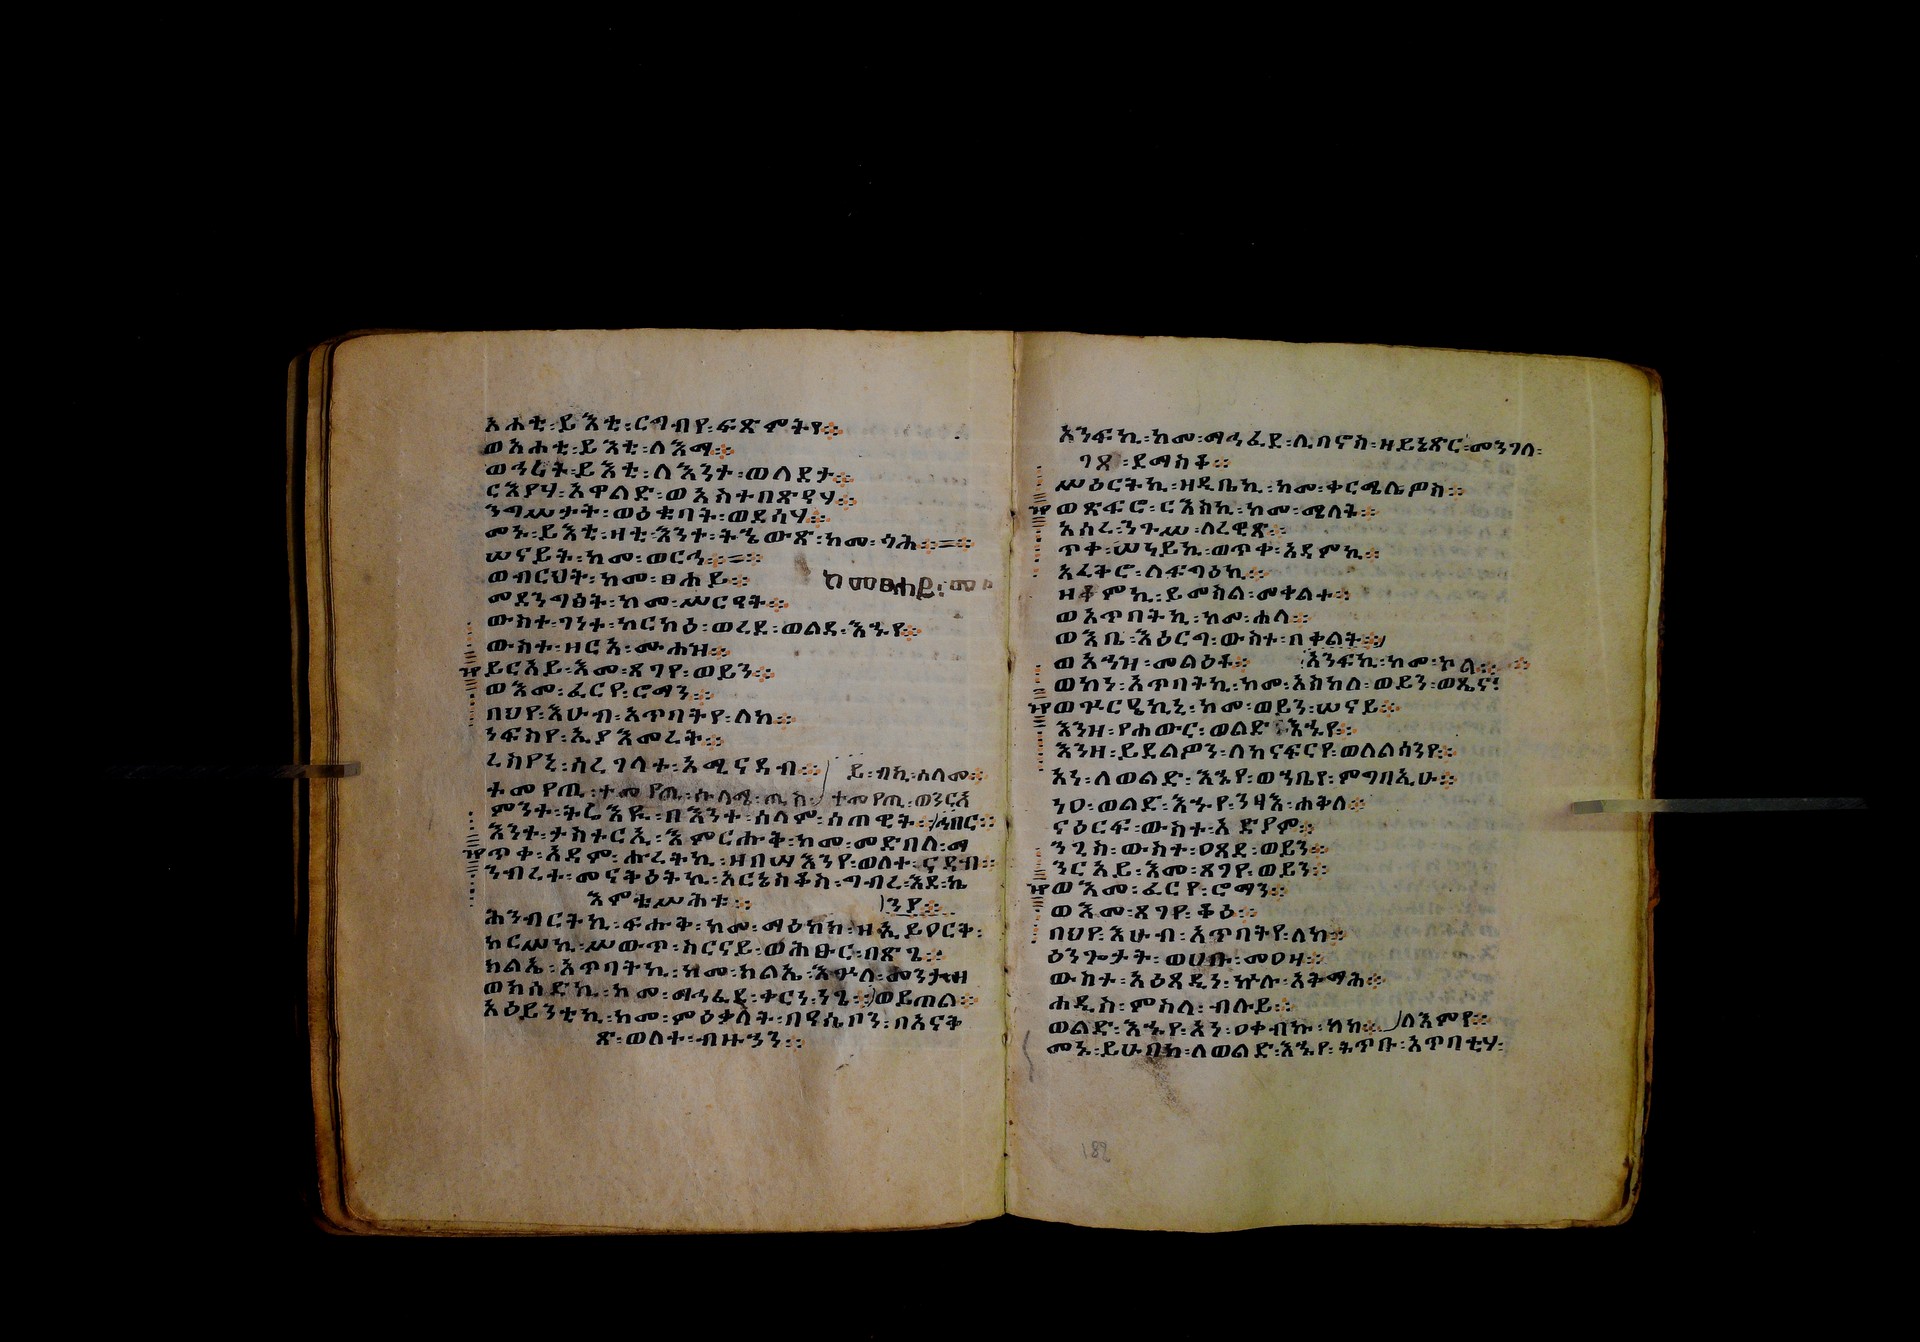 አሐቲ፡ይእቲ፡ርግብየ፡ፍጽምትየ፡፡
ወአሐቲ፡ይእቲ፡ለእማ፡፡
ወኅሪት፡ይእቲ፡ለእንተ፡ወለደታ፡፡
ርእያሃ፡አዋልድ፡ወአስተበጽዓሃ፡፡
ንግሥታት፡ወዕቁባት፡ወደሳሃ፡፡
መኑ፡ይእቲ፡ዛቲ፡እንተ፡ትኔውጽ፡ከመ፡ጎሕ፡፡
ሠናይት፡ከመ፡ወርኅ፡፡
ወብርህት፡ከመ፡ፀሐይ፡፡ ከመፀሐይ፡
መደንግፅት፡ከመ፡ሥርዓት፡፡
ውስተ፡ገነተ፡ከርካዕ፡ወረደ፡ወልደ፡እኁየ፡፡
ውስተ፡ዘርአ፡ሙሐዝ፡፡
ይርአይ፡እመ፡ጸገየ፡ወይን፡፡
ወእመ፡ፈርየ፡ሮማን፡፡
በህየ፡እሁብ፡አጥባትየ፡ለከ፡፡
ነፍስየ፡ኢያእመረት፡፡
ረሰየኒ፡ሰረገላተ፡አሚናዳብ፡፡
ተመየጢ፡ ተመየጢ፡ወንርአ
ምንተ፡ትሬእዩ፡በእንተ፡ሰላም፡ሰጠዊት፡፡
እንተ፡ታስተርኢ፡እምርሑቅ፡ከመ፡መድበለ፡ማ
ጥቀ፡አዳም፡ሑረትኪ፡ዘበሣእንየ፡ወለተ፡ናዳብ፡፡
ንብረተ፡መናቅዕትኪ፡አርኔስቆስ፡ግብረ፡እደ፡ኬ
ሕንብርትኪ፡ፍሑቅ፡ከመ፡ማዕከክ፡ዘኢይፀርቅ፡
ከርሥኪ፡ሥውጥ፡ከርናይ፡ወሕፁር፡በጽጌ፡፡
ክልኤ፡አጥባትኪ፡ከመ፡ክልኤ፡እጓለ፡መንታ፡ዘ
ወክሳድኪ፡ከመ፡ማኅፈደ፡ቀርነ፡ንጌ፡፡
አዕይንቲኪ፡ከመ፡ምዕቃላት፡በሐሴቦን፡በአናቅ
ጽ፡ወለተ፡ብዙኃን፡፡
አንፍኪ፡ከመ፡ማኅፈደ፡ሊባኖስ፡ዘይኔጽር፡መንገለ፡
ገጸ፡ደማስቆ፡፡
ሥዕርትኪ፡ዘዲቤኪ፡ከመ፡ቀርሜሎስ፡፡
ወጽፍሮ፡ርእስኪ፡ከመ፡ሜላት፡፡
አስረ፡ንጉሠ፡ለረዊጽ፡፡
ጥቀ፡ሠነይኪ፡ወጥቀ፡አዳምኪ፡፡
አፈቅሮ፡ለፍግዕኪ፡፡
ዘቆምኪ፡ይመስል፡መቀልተ፡፡
ወአጥባትኪ፡ከመ፡ሐላ፡፡
ወእቤ፡እዕርግ፡ውስተ፡በቀልት፡፡
ወእኅዝ፡መልዕቶ፡፡ አንፍኪ፡ከመ፡ኮል፡፡
ወኮነ፡አጥባትኪ፡ከመ፡አስካለ፡ወይን፡ወጼና፡
ወጕርዔኪኒ፡ከመ፡ወይን፡ሠናይ፡፡
እንዘ፡የሐውር፡ወልድ፡እኁየ፡፡
እንዘ፡ይደልዎን፡ለከናፍርየ፡ወለልሳንየ፡፡
አነ፡ለወልድ፡እኁየ፡ወኀቤየ፡ምግባኢሁ፡፡
ነዐ፡ወልድ፡እኁየ፡ንፃእ፡ሐቅለ፡፡
ናዕርፍ፡ውስተ፡አድያም፡፡
ንጊስ፡ውስተ፡ዐጸደ፡ወይን፡፡
ንርአይ፡እመ፡ጸገየ፡ወይን፡፡
ወእመ፡ፈርየ፡ሮማን፡፡
ወእመ፡ጸገየ፡ቆዕ፡፡
በህየ፡እሁብ፡አጥባትየ፡ለከ፡፡
ዕንጐታት፡ወሀቡ፡መዐዛ፡፡
ውስተ፡አዕጻዲነ፡ኵሉ፡አቅማሕ፡፡
ሐዲስ፡ምስለ፡ብሉይ፡፡
ወልድ፡እኁየ፡አነ፡ዐቀብኩ፡ለከ፡፡ ለእምየ፡፡
መኑ፡ይሁበከ፡ለወልድ፡እኁየ፡ትጥቡ፡አጥባቲሃ፡
182